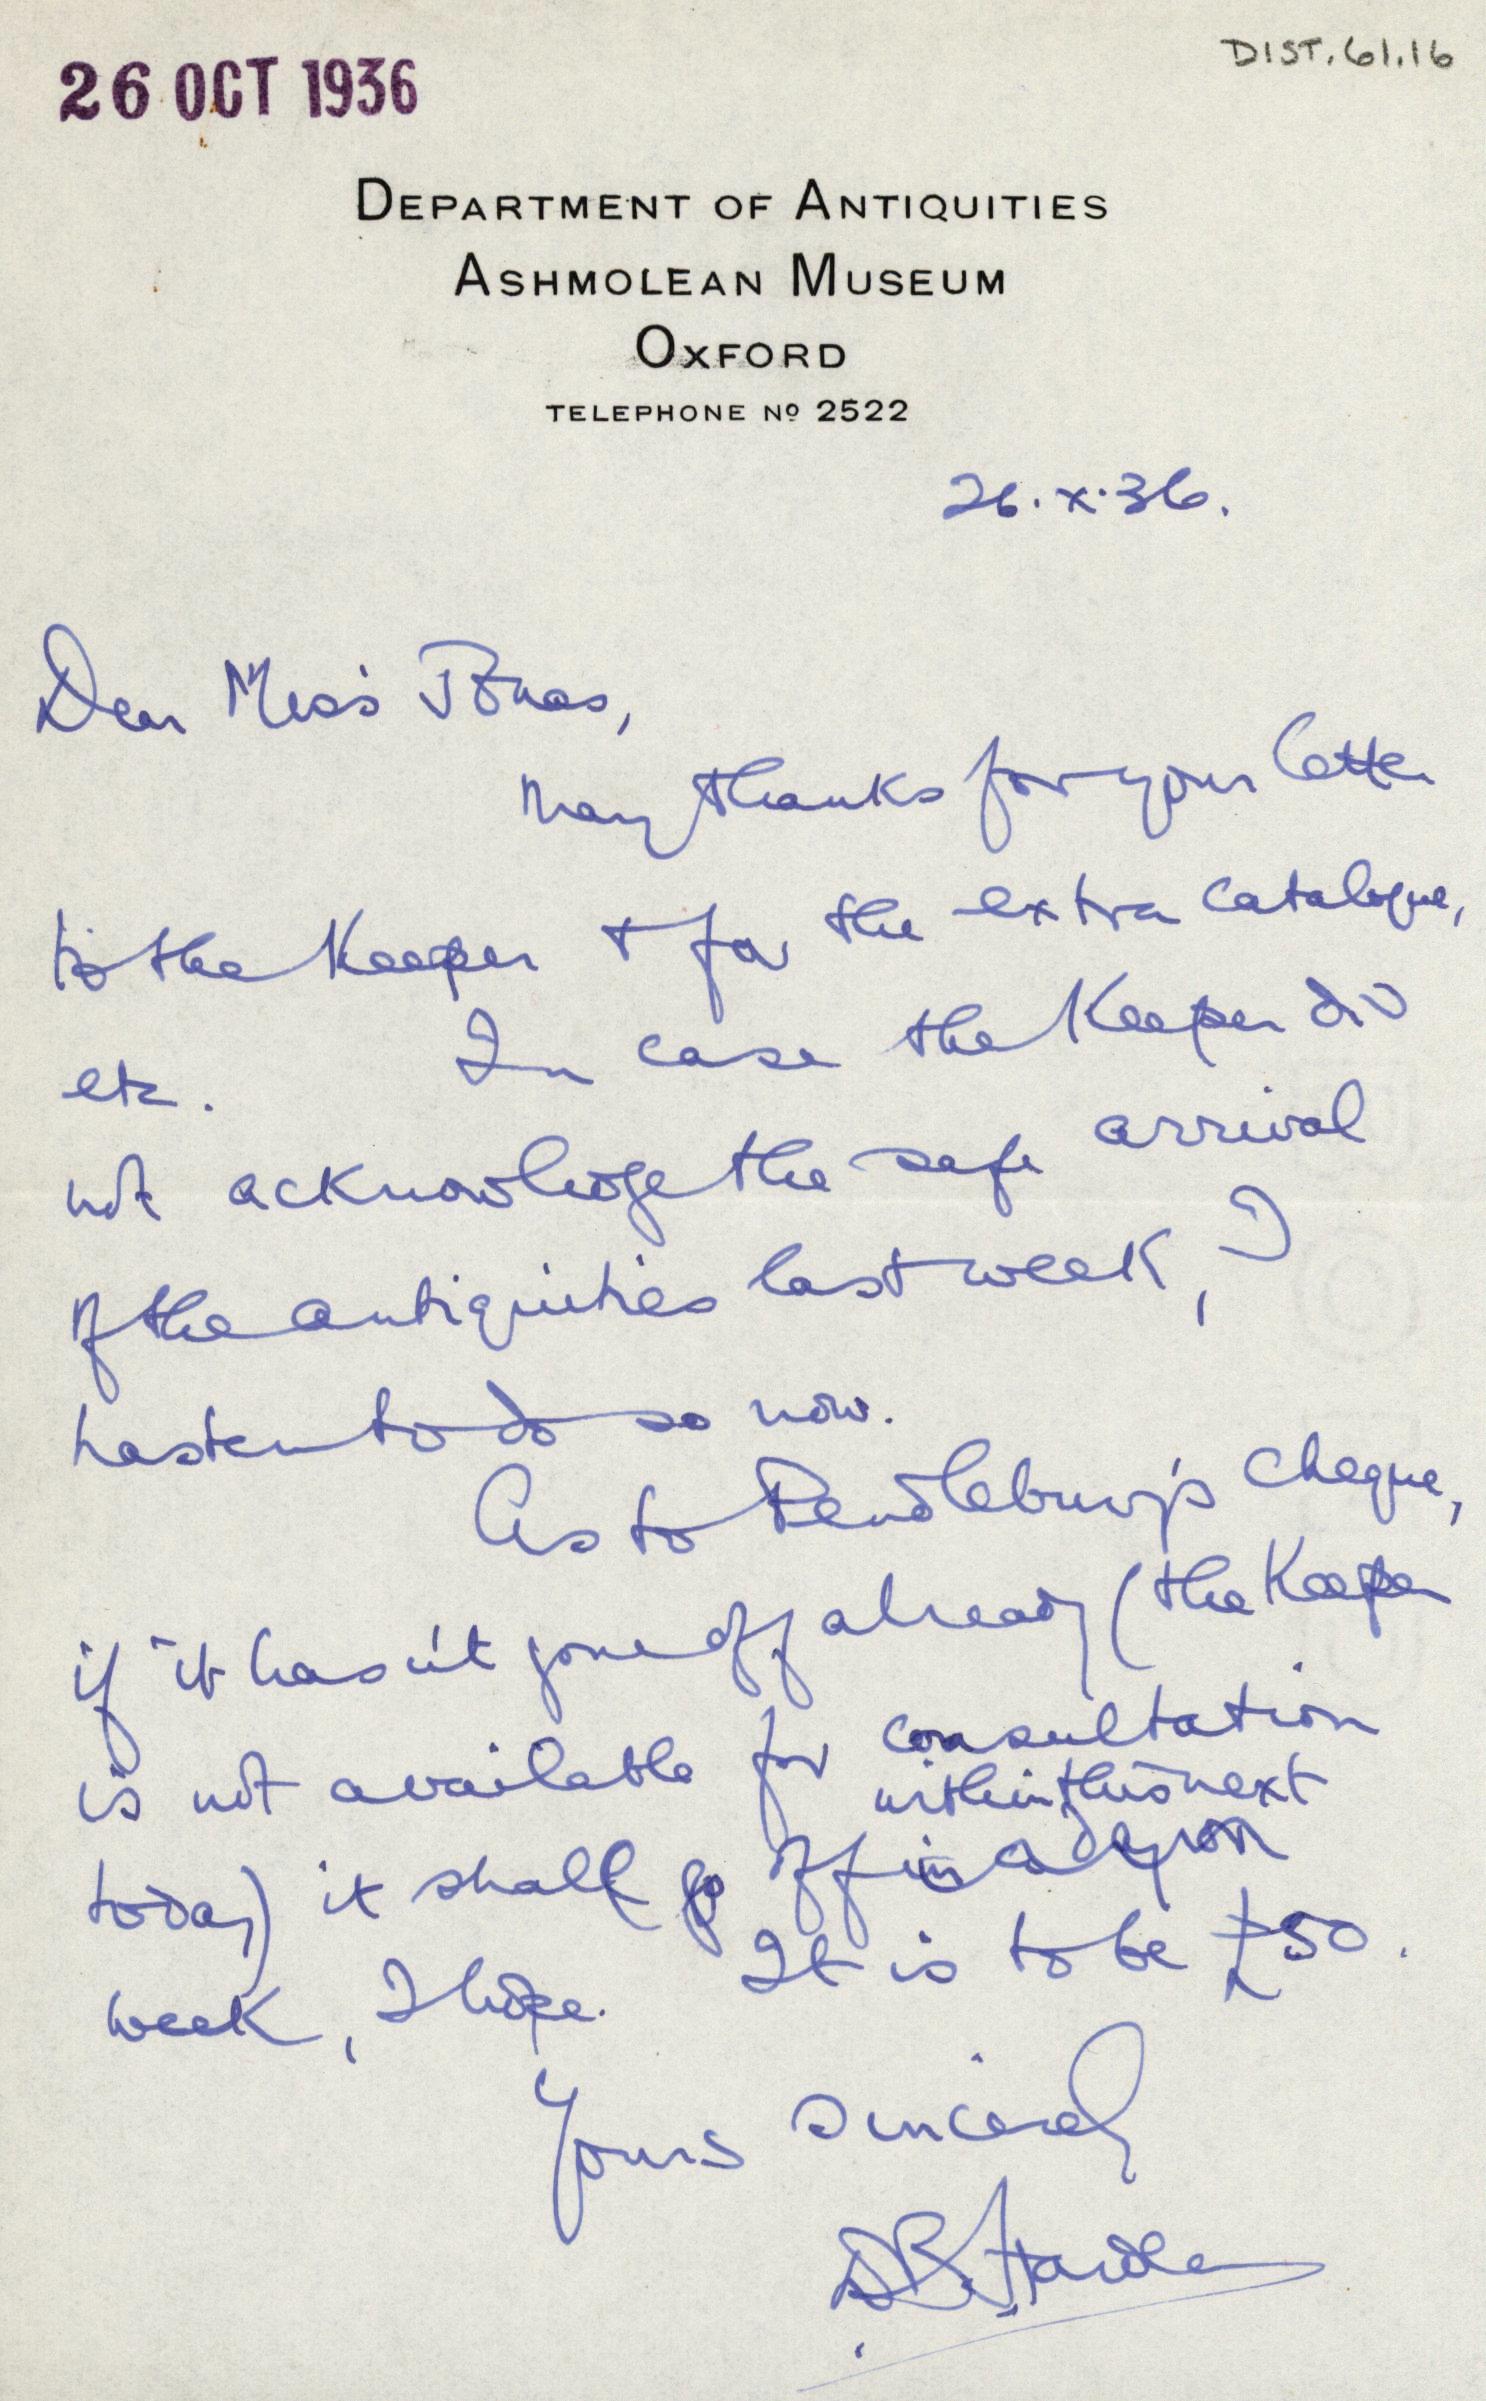 26 OCT 1936
DIST. 61.16
DEPARTMENT OF ANTIQUITIES
ASHMOLEAN MUSEUM
OXFORD
TELEPHONE Nº 2522
26.X.36.
Dear Miss Jonas,
Many thanks for your letter
to the Keeper + for the extra catalogue,
etc. In case the Keeper did
not acknowledge the safe arrival
of the antiquities last week, I
hasten to do so now.
As to Pendlebury's cheque,
if it hasn't gone off already (the Keeper
is not available for consultation
within this next
today) it shall go off in a day or
week, I hope. It is to be £50.
Yours sincerely
DB Harden